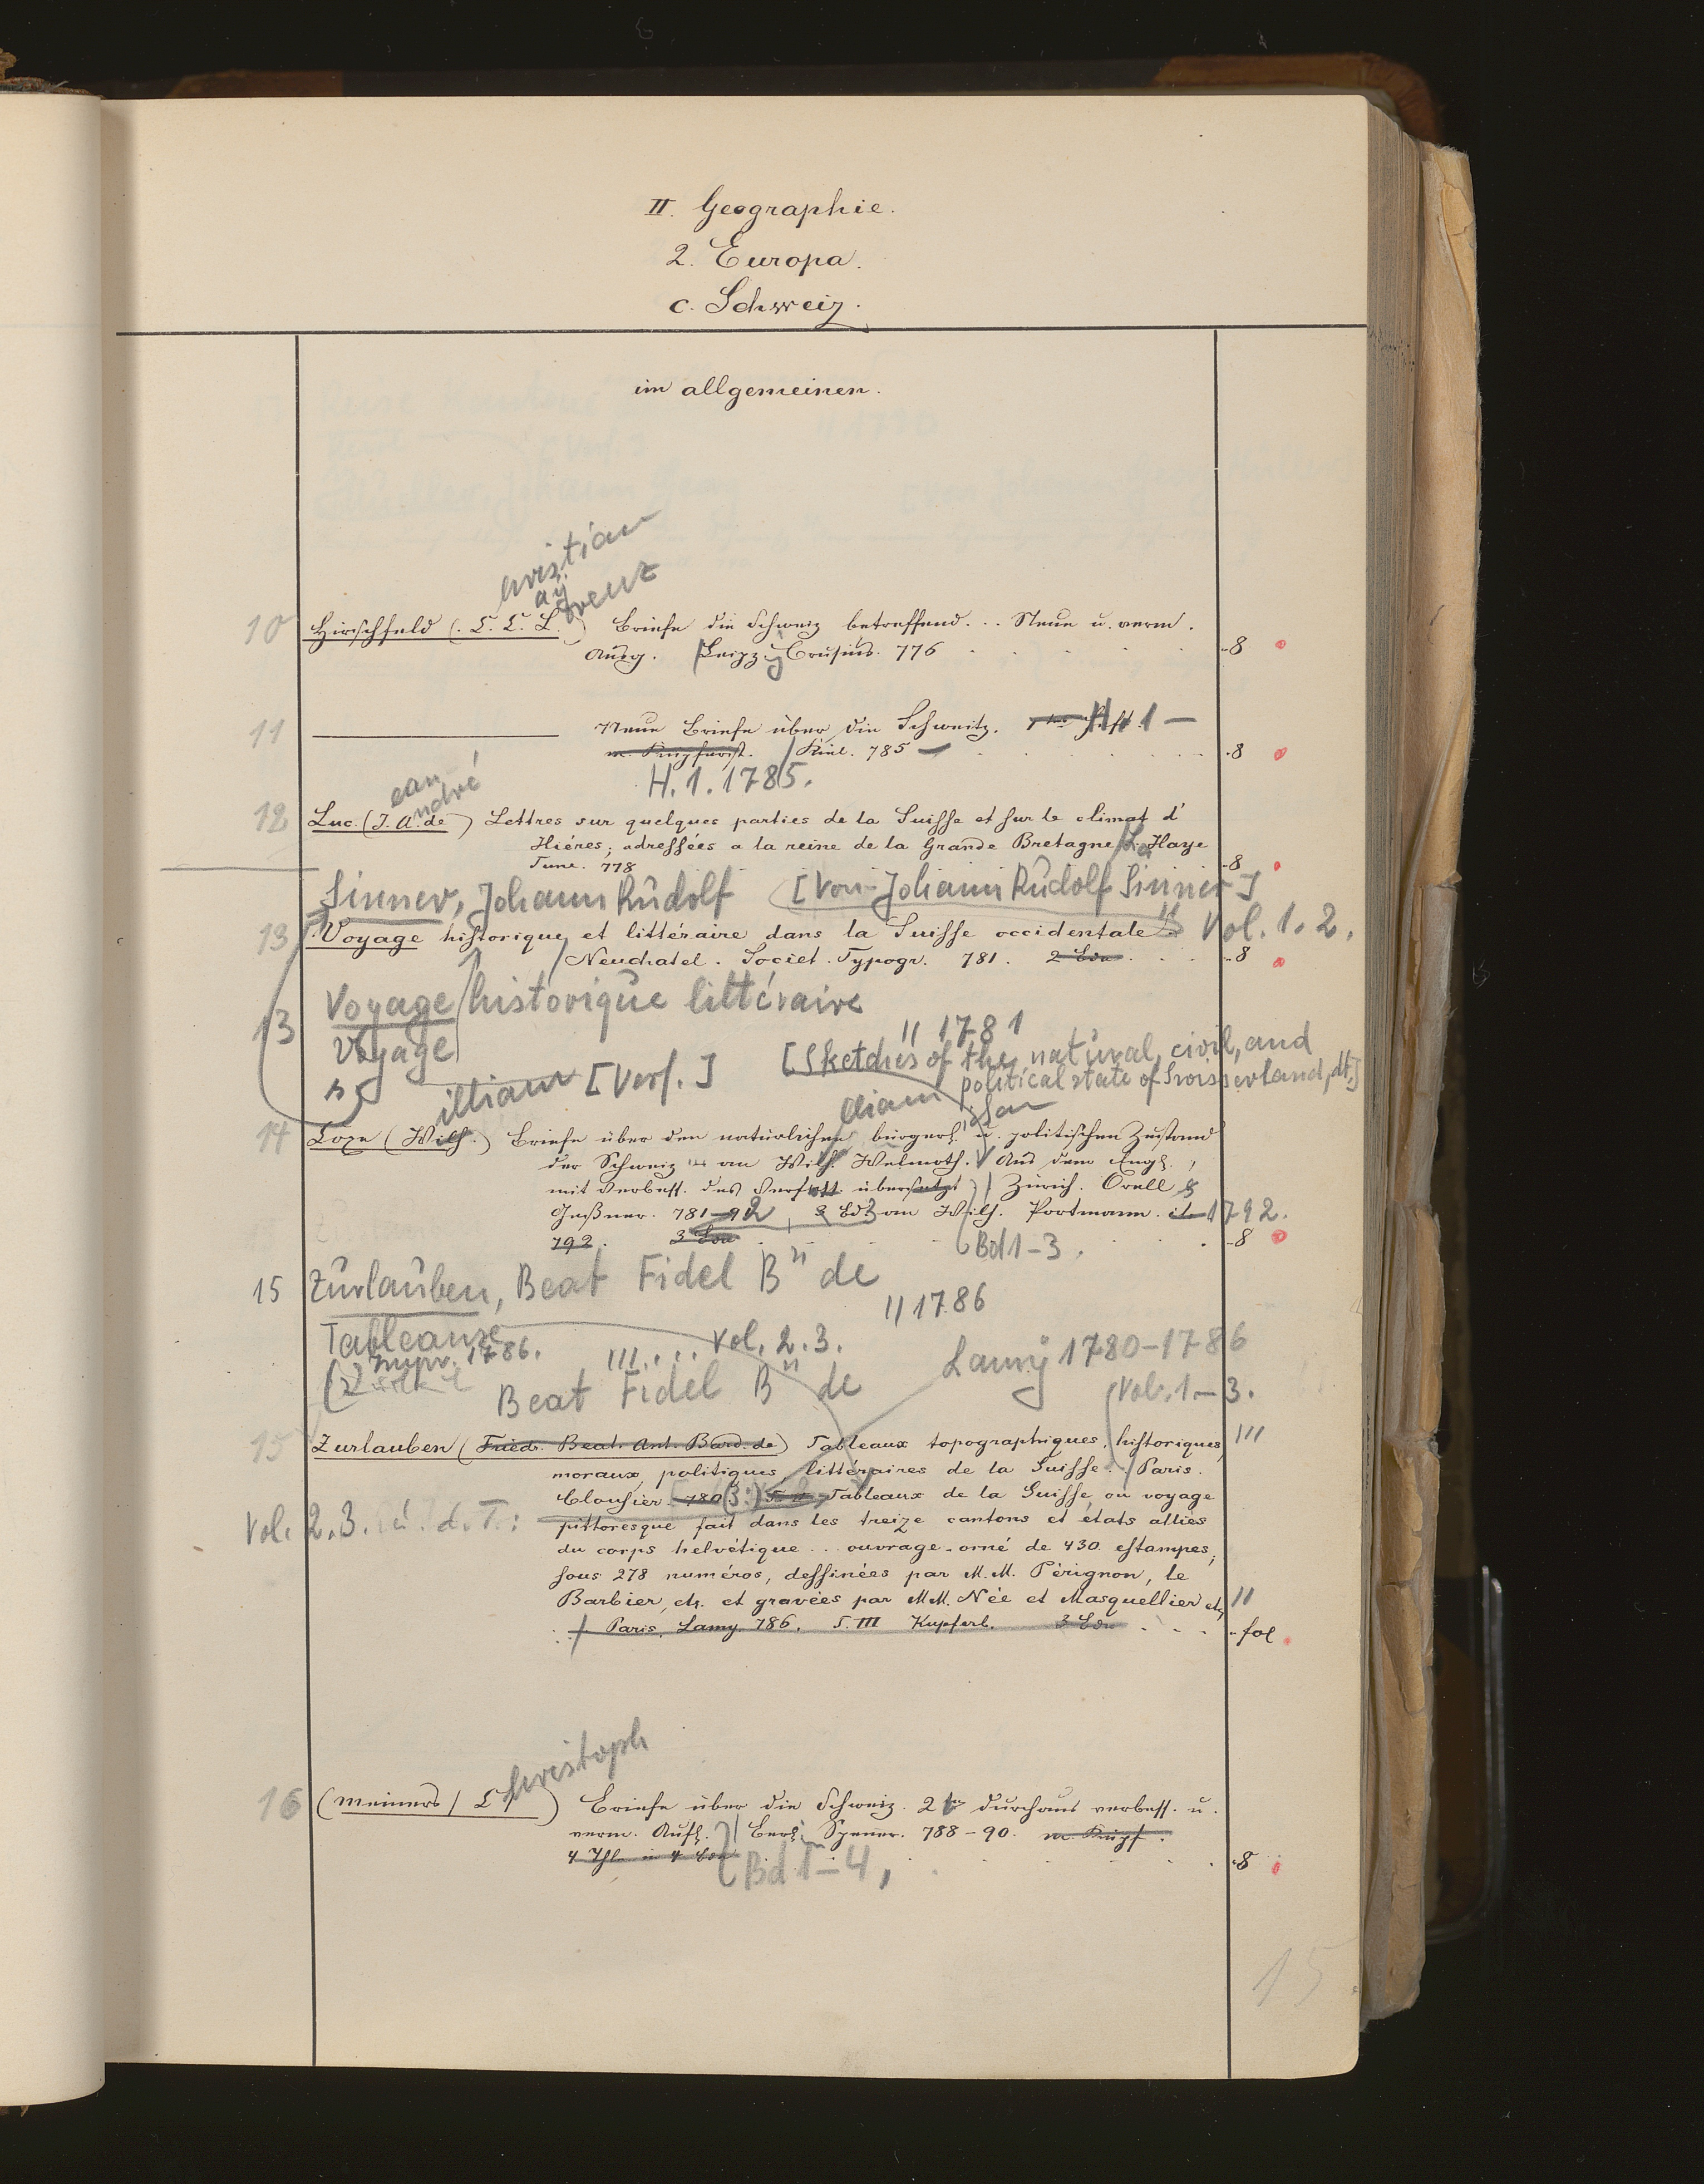 II. Geographie.
2. Europa.
c. Schweiz.
im allgemeinen.
hristian
ay
orenz
10 Hirschfeld (C. C. L.) Briefe die Schweiz betreffend... Neue u. verm.
Ausg. Leipz. Crusius. 776 8
11 Neue Briefe über die Schweitz. H. 1 —
m. Kupferst. Kiel. 785 — 8
H. 1. 1785.
ean
ndré
12 Luc. (J. A. de) Lettres sur quelques parties de la Suisse et sur le climat d'
Hiéres; adressées a la reine de la Grande Bretagne La Haye
8
Tune. 778
Sinner, Johann Rudolf [Von Johann Rudolf Sinner]
13 Voyage historique et littéraire dans la Suisse occidentale Vol. 1. 2.
Neuchatel. Societ. Typogr. 781. 2 Bde 8
13 Voyage historique littéraire
Voyage
11 1781
[Sketches of the natural, civil, and
illiam [Verf.] political state of Swisserland, dt.]
lliam
14 Coxe (Wilh.) Briefe über den natürlichen bürgerl. u. politischen Zustand
der Schweiz an Wilh. Welmoth. Aus dem Engl.,
mit verbess. des Verf. übersetzt Zürich. Orell
Geßner. 781-92, 3 Bd an Wilh. Portmann. 1792.
792. 3 Bde 8
Bd 1-3.
15 Zurlauben, Beat Fidel Bn de
11 1786
Tableaux
Impr. 1786. III.... Vol. 2.3.
Lamy 1780-1786
Beat Fidel Bn de Vol. 1-3.
15 Zurlauben (Friedr. Beat. Ant. Bard. de) Tableaux topographiques, historiques, III
moraux, politiques, littéraires de la Suisse. Paris.
Clousier. 780 (3:) Tableaux de la Suisse, ou voyage
Vol. 2.3. u. d. T.: pittoresque fait dans les treize cantons et états alliés
du corps helvétique... ouvrage orné de 430 estampes,
sous 278 numéros, dessinées par M. M. Pérignon, le
Barbier, etc. et gravées par M.M. Née et Masquellier etc, II
Paris, Lamy. 786. T. III Kupferb. 3 Bde fol
hristoph
16 (Meiners / C) Briefe über die Schweiz. 2te durchaus verbess. u.
verm. Aufl. Berl. Spener. 788-90. m. Kupf.
4 Thl. in 4 Bde 8
Bd 1-4,
15